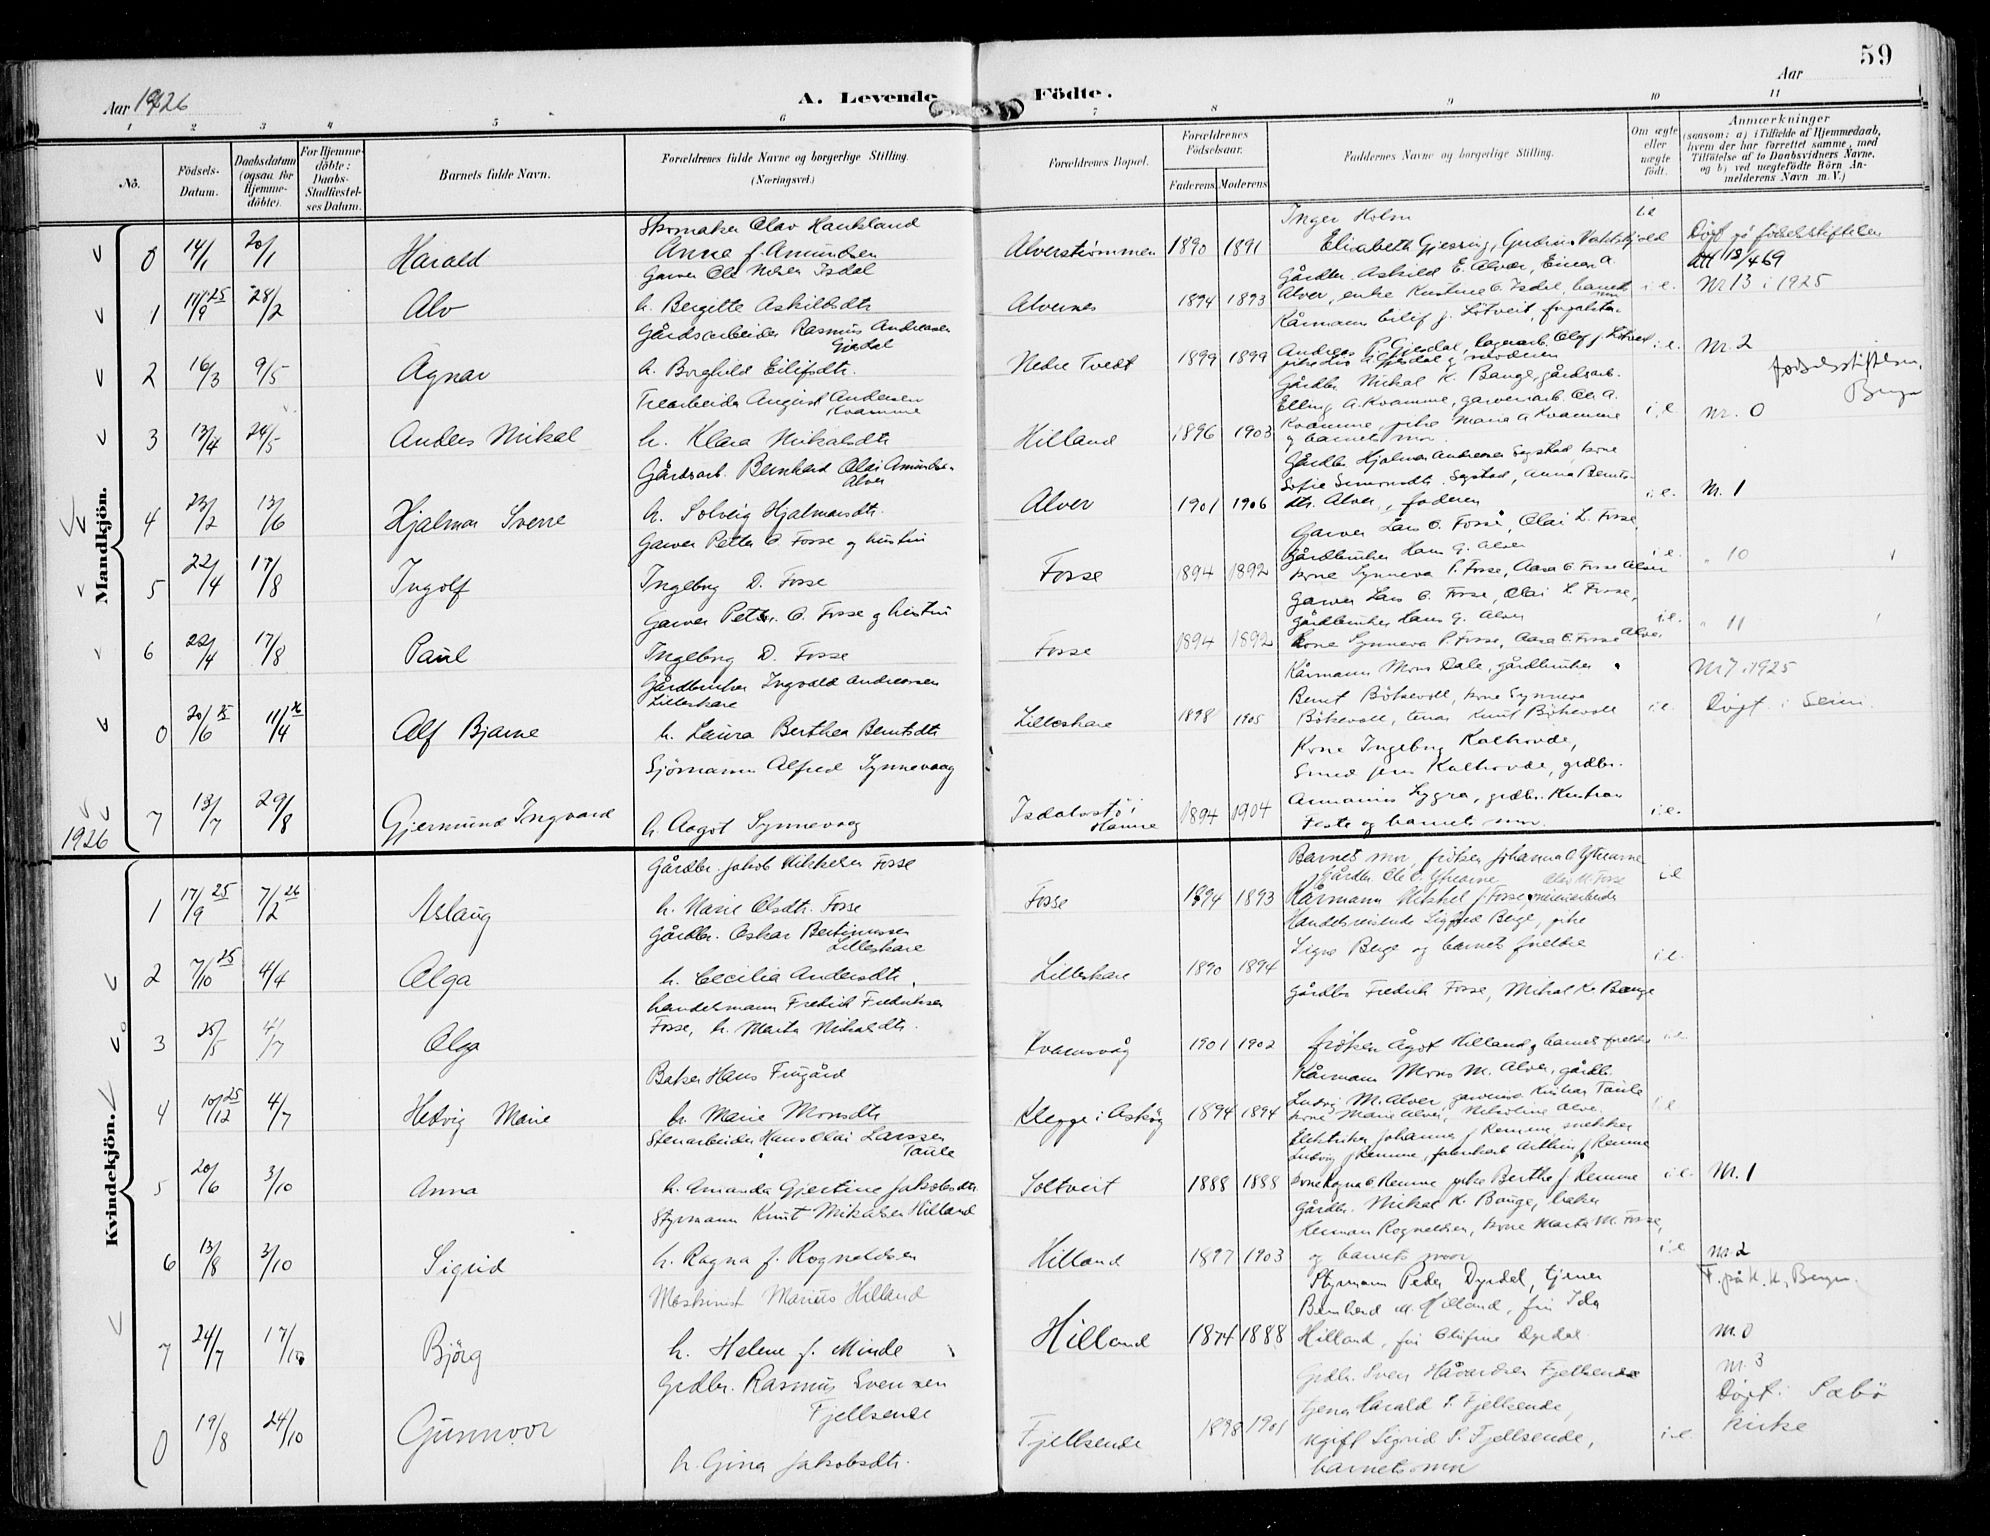 59
Aar 1926
A. Levende Födte.
Aar
1 2 3 4 5 6 7 8 9 10 11
No.
Födsels-Datum.
Daabsdatum (ogsaa for Hjemme-döbte).
For Hjemme-döbte: Daabs-Stadfæstel-ses Datum.
Barnets fulde Navn.
Forældrenes fulde Navne og borgerlige Stilling. (Næringsvei.)
Forældrenes Bopæl.
Forældrenes Födselsaar.
Faderens Moderens
Faddernes Navne og borgerlige Stilling.
Om ægte eller uægte födt.
Anmærkninger (saasom: a) i Tilfælde af Hjemmedaab, hvem der har forrettet samme, med Tilföielse af to Daabsvidners Navne, og b) ved uægtefödte Börn Anmelderens Navn m. V.)
Mandkjön.
0 14/1 20/1 Harald
Skomaker Olav Haukland
Anna f. Amundsen
Alverströmmen 1890 1891
Inger Holm
Elisabeth Gjessing, Gudrun
i.e
Döpt på födselsstiftelsen
Att 12/469
1 11/9 25 28/2 Alv
Garver Ole Nilsen Isdal
h. Bergitte Askildsdtr
Alvernes 1894 1893
Gårdbr. Askild E. Alver, Einar A.
Alver, enke Kristine O. Isdal, barnets mor
i.e.
Nr 13 i 1925
2 16/3 9/5 Agnar
Gårdsarbeider Rasmus Andreassen Gjesdal
h. Borghild Eilifsdtr.
Nedre Tvedt 1899 1899
Kårmann Eilif J. Lötveit
Andreas P. Gjesdal, lagerarb. Olaf J. Lötveit
i.e.
Nr. 2
3 13/4 24/5 Anders Mikal
Trearbeider August Andersen Kvamme
h. Klara Mikalsdtr
Hilland 1896 1903
Gårdbr Mikal K. Bauge, gårdsarb.
Elling A. Kvamme, garveriarb. Ole A.
Kvamme, pike Marie A Kvamme
og barnets mor.
i.e.
Nr. 0
fødselsstiftelsen, Bergen
4 23/2 13/6 Hjalmar Sverre
Gårdsarb. Bernhard Olai Amundsen Alver
h. Solveig Hjalmarsdtr.
Alver 1901 1906
Gårdbr Hjalmar Andreassen Sagstad kone
Sofie Simonsdtr. Sagstad, Anna Bernts-
dtr. Alver, faderen
i.e.
Nr. 1
5 22/4 17/8 Ingolf
Garver Petter O. Fosse og hustru
Ingeborg D. Fosse
Fosse 1894 1892
Garver Lars O. Fosse, Olai L. Fosse
Gårdbruker Hans G. Alver
kone Synneva P. Fosse, Aasa O. Fosse Alver
i.e.
" 10
6 22/4 17/8 Paul
Garver Petter O. Fosse og hustru
Ingeborg D. Fosse
Fosse 1894 1892
Garver Lars O. Fosse, Olai L. Fosse,
gårdbruker Hans G. Alver
kone Synneva P. Fosse, Aasa O. Fosse Alver
i.e.
" 11
0 20/6 25 11/4 26 Alf Bjarne
Gårdbruker Ingvald Andreassen Lilleskare
h. Laura Berthea Berntsdtr
Lilleskare 1898 1905
Kårmann Mons Dale, gårdbruker
Bernt Bökevoll, kone Synneva
Bökevoll, Knut Bökevoll
i.e.
Nr 7 i 1925
Döpt i Seim
7 13/7 29/8 Gjermund Ingvard
Sjömann Alfred Synnevaag
h. Aagot Synnevaag
Isdalstö i Hamre 1894 1904
Kone Ingeborg Kalhovde,
Smed Jens Kalhovde, grdbr.
Lygra, grdbr. Kristian
og barnets mor.
i.e.
1926
Kvindekjön.
1 17/9 25 7/2 26 Aslaug
Gårdbr. Jakob Mikkelsen Fosse
h. Marie Olsdtr. Fosse
Fosse 1894 1893
Barnets mor, fröken Johanna O Ytrearne
Gårdbr. Ole O. Ytrearne Olav M. Fosse
Kårmann Mikkel J Fosse
i.e
2 7/10 25 4/4 Olga
Gårdbr. Oskar Bertinussen Lilleskare
h. Cecilia Andersdtr.
Lilleskare 1890 1894
Handelsreisende Sigfred Berge, pike
Signe Berge og barnets foreldre
i.e.
3 25/5 4/7 Olga
Handelsmann Fredrik Fredriksen
Fosse, h. Marta Mikalsdtr.
Kvamsvåg 1901 1902
Gårdbr Fredrik Fosse, Mikal K. Bauge
fröken Ågot Hilland og barnets foreldre
i.e.
4 10/12 25 4/7 Hedvig Marie
Baker Hans Fingård
h. Marie Monsdtr
Klegge i Askøy 1894 1894
Kårmann Mons M. Alver, gårdbr.
Ludvig M. Alver, Kristian Taule
kone Marie Alver, Nikoline Alver
i.e
5 20/6 3/10 Anna
Stenarbeider Hans Olai Larssen Taule
h. Amanda Gjertine Jakobsdtr.
Soltveit 1888 1888
Elektriker Johannes J Remme snekker
Ludvig J Remme, fabrikarb Arthur J Remme
kone Ragna O Remme pike Berthe J Remme
i.e.
Nr. 1
6 13/8 3/10 Sigrid
Styrmann Knut Mikalsen Hilland
h. Ragna f. Rognaldsen
Hilland 1897 1903
Gårdbr. Mikal K. Bauge, baker
Herman Rognaldsen, kone Marta M. Fosse,
og barnets mor
i.e
nr. 2
F. på K. K, Bergen.
7 24/7 17/10 Björg
Maskinist Marius Hilland
h. Helene f. Minde
Hilland 1874 1888
Styrmann Peder Dyrdal, tjener
Bernhard M. Hilland, fru Ida
Hilland, fru Olufine Dyrdal
nr. 0
0 19/8 24/10 Gunnvor
Grdbr. Rasmus Svensen Fjellsende
h. Gina Jakobsdtr.
Fjellsende 1898 1901
Grdbr. Sven Håvardsen Fjellsende
tjener Harald S. Fjellsende,
ugift Sigrid S. Fjellsende,
barnets mor
i.e.
nr. 3
Döpt i Sæbö kirke